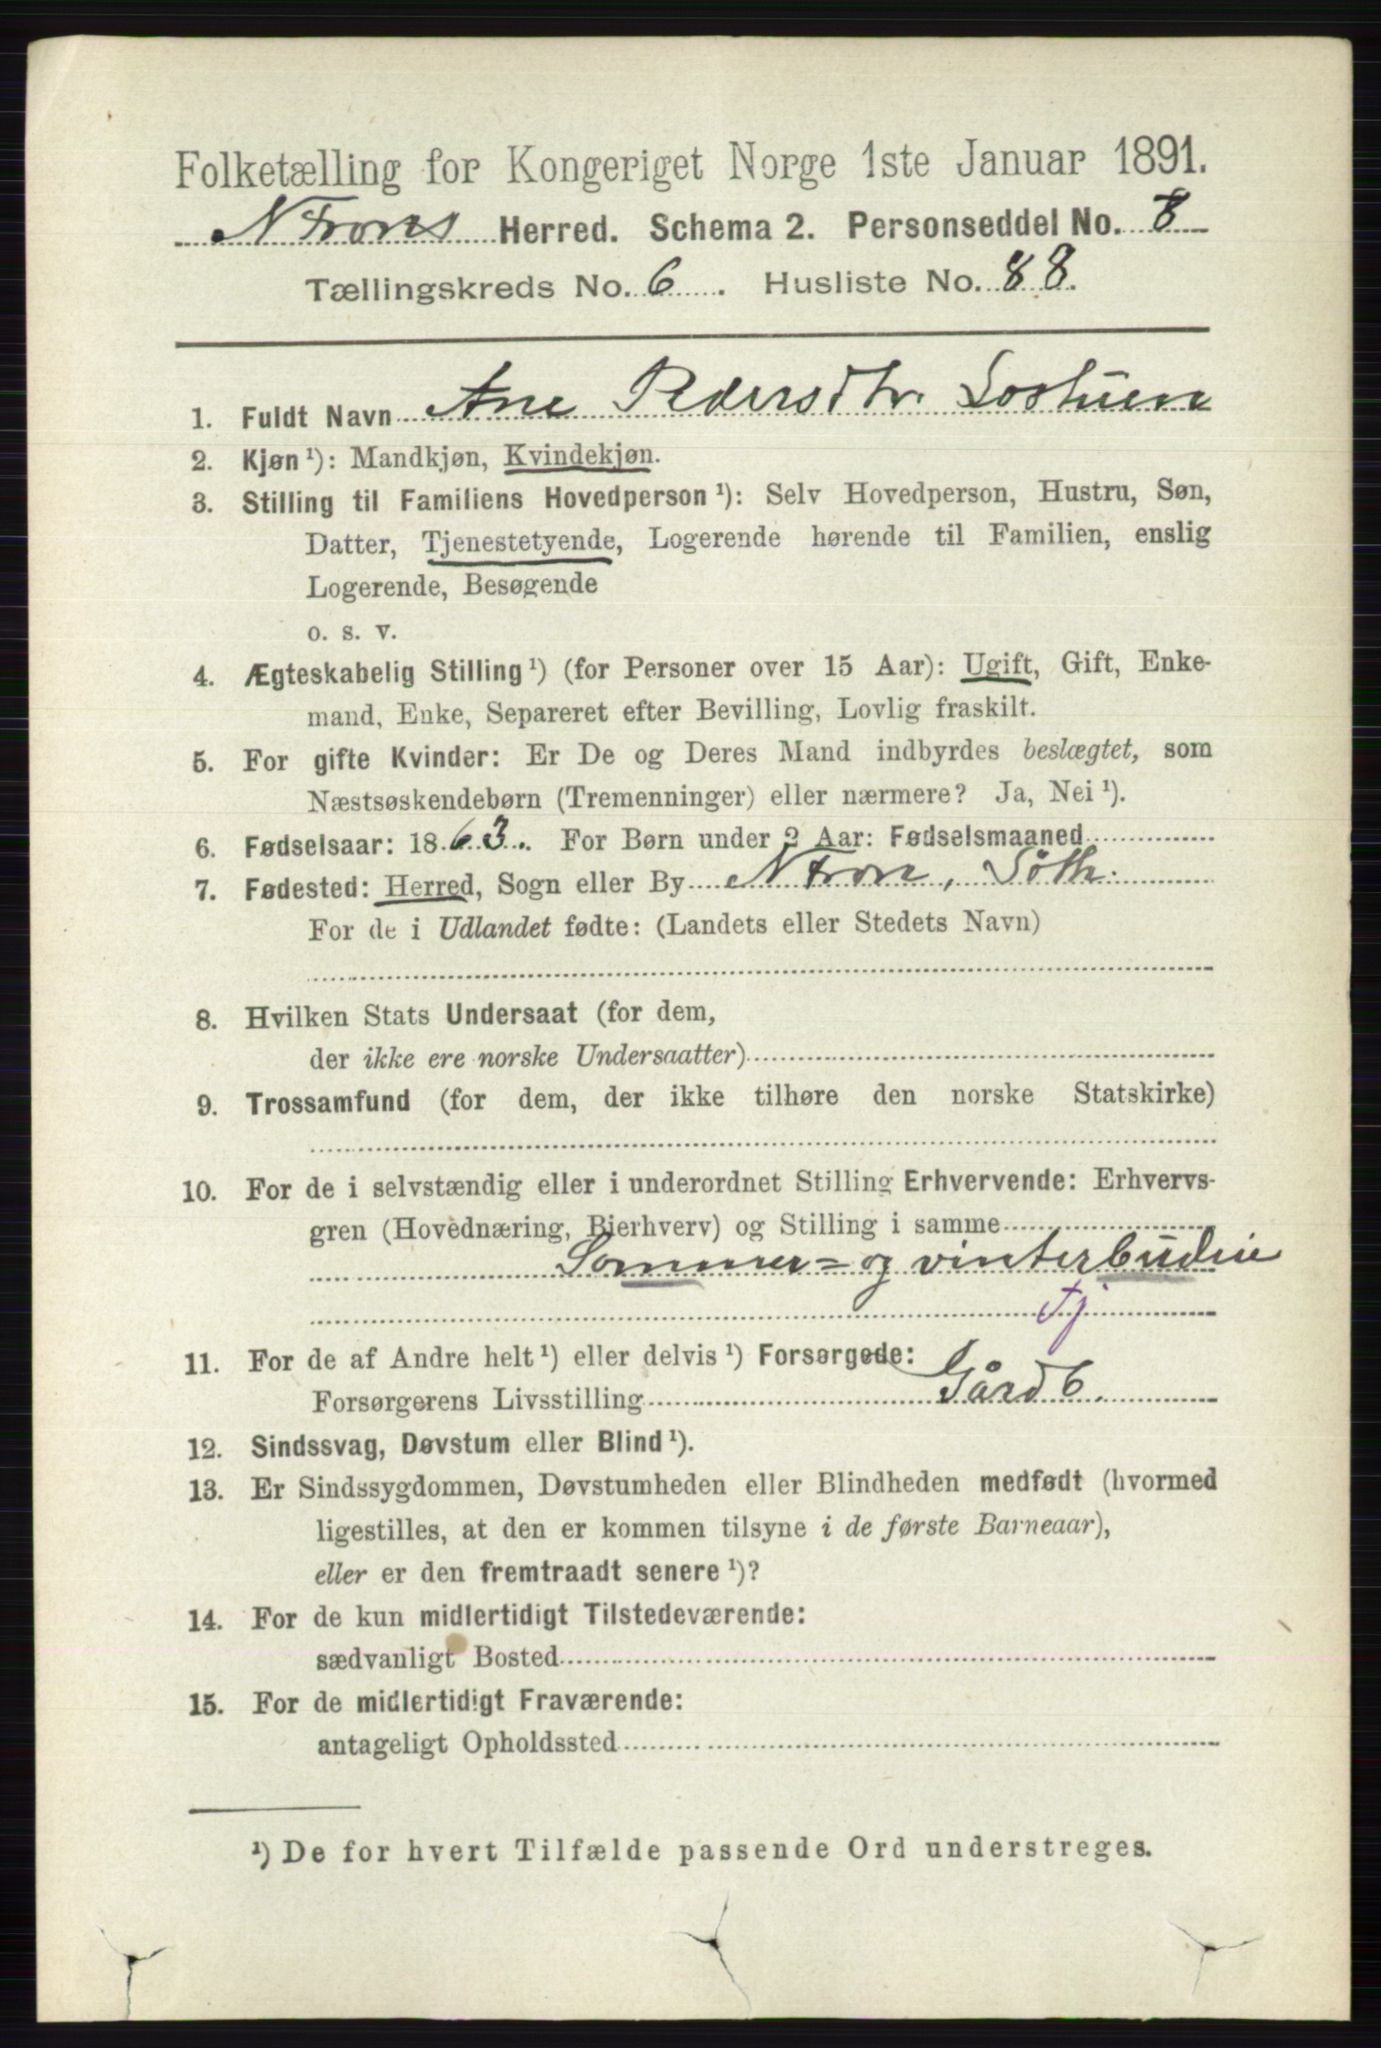 Folketælling for Kongeriget Norge 1ste Januar 1891.
N Frons Herred. Schema 2. Personseddel No. 8
Tællingskreds No. 6. Husliste No. 88.
1. Fuldt Navn Ane Pedersdtr. Lostuen
2. Kjøn ¹): Mandkjøn, Kvindekjøn.
3. Stilling til Familiens Hovedperson ¹): Selv Hovedperson, Hustru, Søn,
Datter, Tjenestetyende, Logerende hørende til Familien, enslig
Logerende, Besøgende
o. s. v.
4. Ægteskabelig Stilling ¹) (for Personer over 15 Aar): Ugift, Gift, Enke-
mand, Enke, Separeret efter Bevilling, Lovlig fraskilt.
5. For gifte Kvinder: Er De og Deres Mand indbyrdes beslægtet, som
Næstsøskendebørn (Tremenninger) eller nærmere? Ja, Nei ¹).
6. Fødselsaar: 1863. For Børn under 2 Aar: Fødselsmaaned
7. Fødested: Herred, Sogn eller By N Fron, Söth.
For de i Udlandet fødte: (Landets eller Stedets Navn)
8. Hvilken Stats Undersaat (for dem,
der ikke ere norske Undersaatter)
9. Trossamfund (for dem, der ikke tilhøre den norske Statskirke)
10. For de i selvstændig eller i underordnet Stilling Erhvervende: Erhvervs-
gren (Hovednæring, Bierhverv) og Stilling i samme
Sommer= og vinterbudeie
tj
11. For de af Andre helt ¹) eller delvis ¹) Forsørgede:
Forsørgerens Livsstilling Gårdb.
12. Sindssvag, Døvstum eller Blind ¹).
13. Er Sindssygdommen, Døvstumheden eller Blindheden medfødt (hvormed
ligestilles, at den er kommen tilsyne i de første Barneaar),
eller er den fremtraadt senere ¹)?
14. For de kun midlertidigt Tilstedeværende:
sædvanligt Bosted
15. For de midlertidigt Fraværende:
antageligt Opholdssted
¹) De for hvert Tilfælde passende Ord understreges.